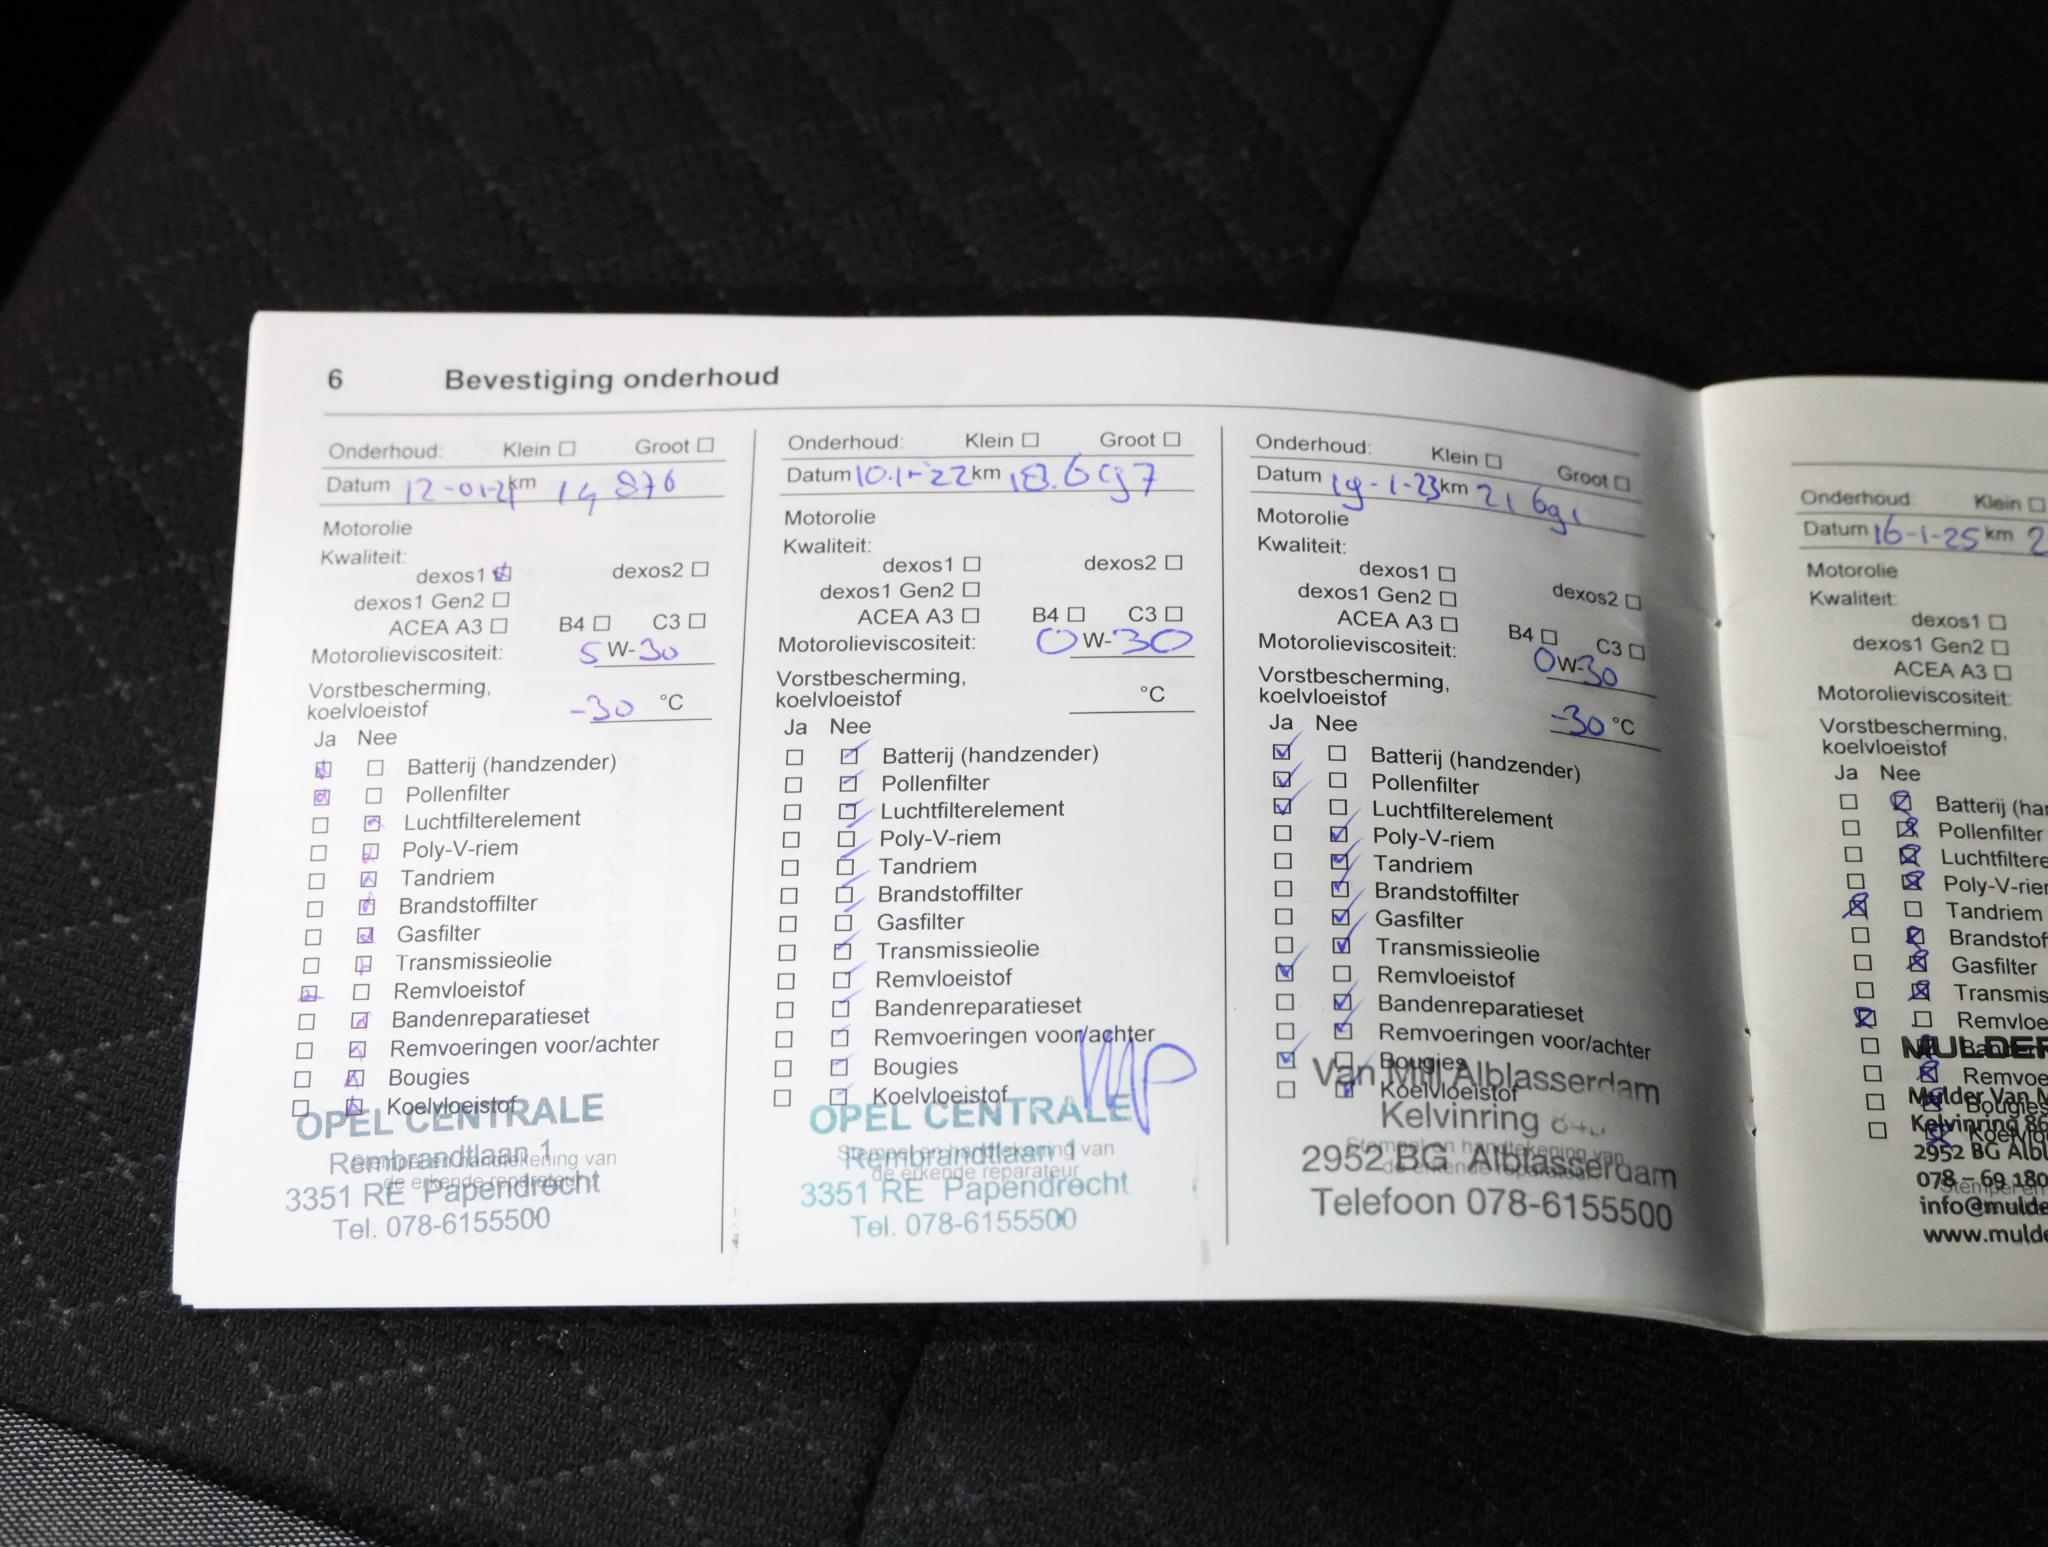 6 Bevestiging onderhoud
Onderhoud: Klein Groot
Datum 12-01-21 km 14 876
Motorolie
Kwaliteit:
dexos1 dexos2
dexos1 Gen2
ACEA A3 B4 C3
Motorolieviscositeit: 5 W-30
Vorstbescherming,
koelvloeistof -30 °C
Ja Nee
Batterij (handzender)
Pollenfilter
Luchtfilterelement
Poly-V-riem
Tandriem
Brandstoffilter
Gasfilter
Transmissieolie
Remvloeistof
Bandenreparatieset
Remvoeringen voor/achter
Bougies
Koelvloeistof
OPEL CENTRALE
Rembrandtlaan 1
Stempel en handtekening van
de erkende reparateur
3351 RE Papendrecht
Tel. 078-6155500
Onderhoud: Klein Groot
Datum 10.1-22 km 18.697
Motorolie
Kwaliteit:
dexos1 dexos2
dexos1 Gen2
ACEA A3 B4 C3
Motorolieviscositeit: 0 W-30
Vorstbescherming,
koelvloeistof °C
Ja Nee
Batterij (handzender)
Pollenfilter
Luchtfilterelement
Poly-V-riem
Tandriem
Brandstoffilter
Gasfilter
Transmissieolie
Remvloeistof
Bandenreparatieset
Remvoeringen voor/achter
Bougies
Koelvloeistof
OPEL CENTRALE
Stempel en handtekening van
Rembrandtlaan 1
de erkende reparateur
3351 RE Papendrecht
Tel. 078-6155500
Onderhoud: Klein Groot
Datum 19-1-23 km 21 691
Motorolie
Kwaliteit:
dexos1 dexos2
dexos1 Gen2
ACEA A3 B4 C3
Motorolieviscositeit: 0W-30
Vorstbescherming,
koelvloeistof -30 °C
Ja Nee
Batterij (handzender)
Pollenfilter
Luchtfilterelement
Poly-V-riem
Tandriem
Brandstoffilter
Gasfilter
Transmissieolie
Remvloeistof
Bandenreparatieset
Remvoeringen voor/achter
Bougies
Van Mill Alblasserdam
Koelvloeistof
Kelvinring
Stempel en handtekening van
2952 BG Alblasserdam
de erkende reparateur
Telefoon 078-6155500
Onderhoud: Klein
Datum 16-1-25 km 2
Motorolie
Kwaliteit:
dexos1
dexos1 Gen2
ACEA A3
Motorolieviscositeit:
Vorstbescherming,
koelvloeistof
Ja Nee
Batterij (han
Pollenfilter
Luchtfiltere
Poly-V-rier
Tandriem
Brandstof
Gasfilter
Transmis
Remvloe
MULDER
Remvoe
Mulder Van M
Bougies
Kelvinring 86
Koelvlo
2952 BG Albl
078 – 69 180
Stempel en
info@mulde
www.mulde